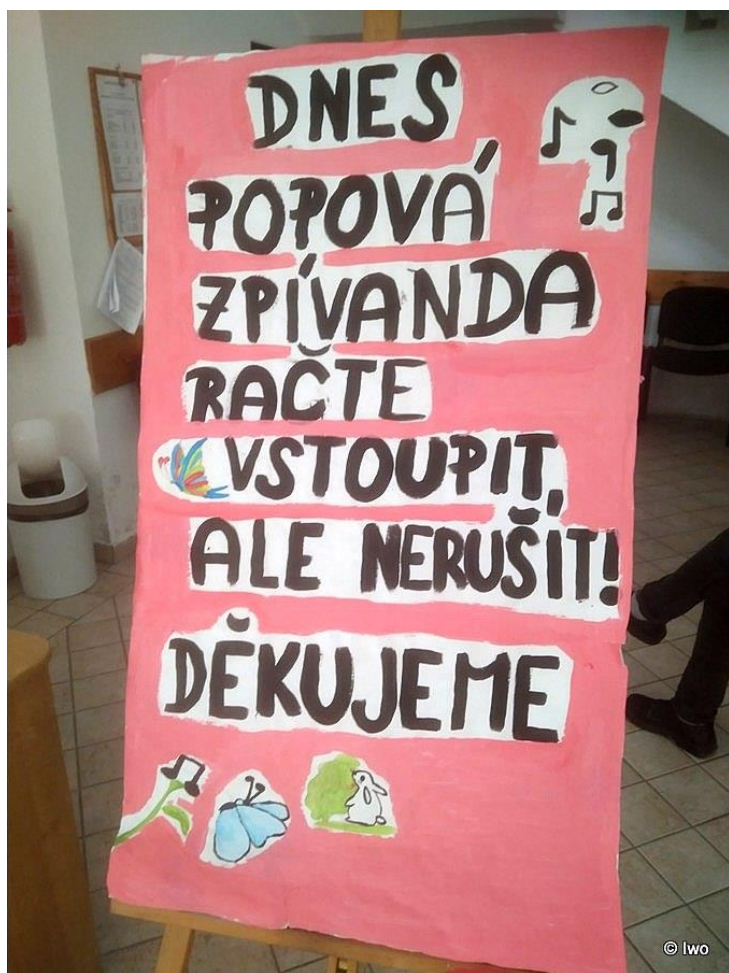 DNES
POPOVÁ
ZPÍVANDA
RAČTE
VSTOUPIT,
ALE NERUŠIT!
DĚKUJEME
© Iwo